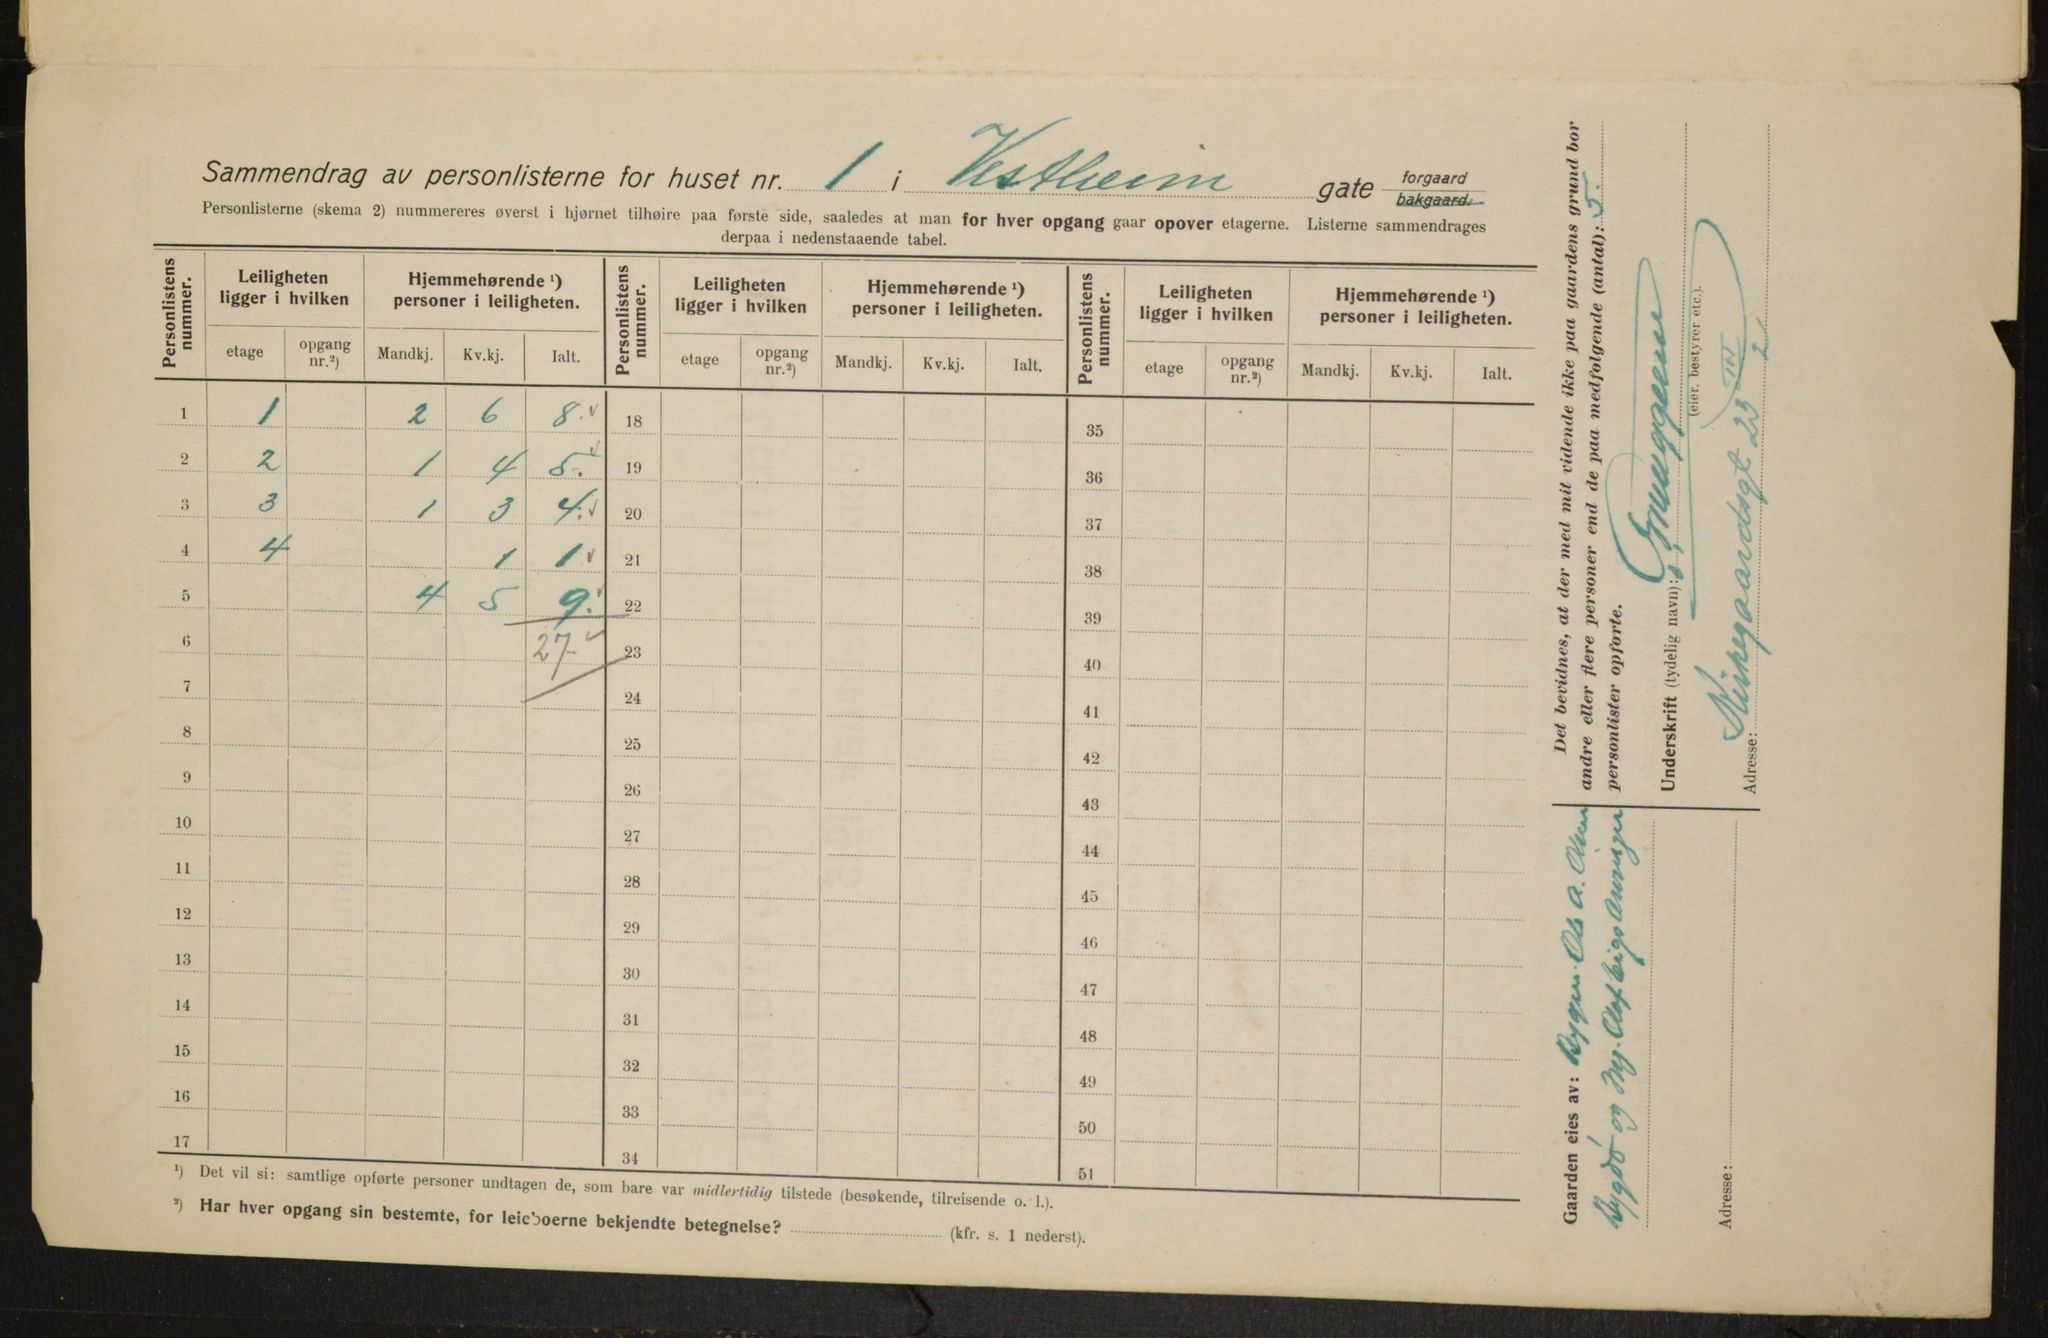 Sammendrag av personlisterne for huset nr. 1 i Vestheim gate forgaard bakgaard.
Personlisterne (skema 2) nummereres øverst i hjørnet tilhøire paa første side, saaledes at man for hver opgang gaar opover etagerne. Listerne sammendrages
derpaa i nedenstaaende tabel.
Personlistens nummer. Leiligheten ligger i hvilken Hjemmehørende ¹) personer i leiligheten. Personlistens nummer. Leiligheten ligger i hvilken Hjemmehørende ¹) personer i leiligheten. Personlistens nummer. Leiligheten ligger i hvilken Hjemmehørende ¹) personer i leiligheten.
etage opgang nr.²) Mandkj. Kv.kj. Ialt. etage opgang nr.²) Mandkj. Kv.kj. Ialt. etage opgang nr.²) Mandkj. Kv.kj. Ialt.
1 1 2 6 8. 18 35
2 2 1 4 5. 19 36
3 3 1 3 4. 20 37
4 4 1 1 21 38
5 4 5 9. 22 39
6 27 23 40
7 24 41
8 25 42
9 26 43
10 27 44
11 28 45
12 29 46
13 30 47
14 31 48
15 32 49
16 33 50
17 34 51
¹) Det vil si: samtlige opførte personer undtagen de, som bare var midlertidig tilstede (besøkende, tilreisende o. l.).
²) Har hver opgang sin bestemte, for leieboerne bekjendte betegnelse? (kfr. s. 1 nederst).
Det bevidnes, at der med mit vidende ikke paa gaardens grund bor
andre eller flere personer end de paa medfølgende (antal): 5.
personlister opførte.
Underskrift (tydelig navn):
(eier, bestyrer etc.).
Adresse: Kirkegaardsgt 23 III
Gaarden eies av: Bygm. Ole A.
Bygdø og Olaf
Adresse: